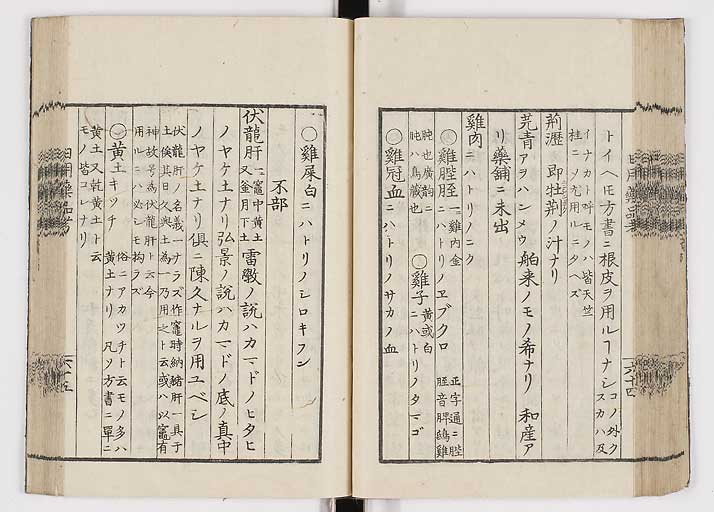 トイヘㇳモ方書ニ根皮ヲ用ルヿナシ コノ外ク スカハ及
イナカト呼モノハ皆天竺
桂ニノ尤用ルニタヘズ
荊瀝 即牡荊ノ汁ナリ
芫青 アヲハンメウ 舶来ノモノ希ナリ 和産ア
リ藥舗ニ未出
雞肉 ニハトリノニク
○雞膍胵 一ニ雞内金 ニハトリノヱブクロ 正字通ニ膍 胵音脾鴟雞
肫也廣韵ニ 肫ハ鳥藏也 ○雞子 黄或白 ニハトリノタマゴ
○雞冠血 ニハトリノサカノ血
六十四
○雞屎白 ニハトリノシロキフン
不部
伏龍肝 一ニ竈中黄土 又釜月下土 雷斅ノ説ハカマドノヒタヒ
ノヤケ土ナリ弘景ノ説ハカマドノ底ノ真中
ノヤケ土ナリ俱ニ陳久ナルヲ用ユベシ
伏龍肝ノ名義一ナラズ作竈時納豬肝一具于
土俟其日久與土為一乃用之ト云或ハ以竈有
神故号為伏龍肝ト云今
用ルニハ必シモ拘ラズ
○黄土 キツチ 俗ニアカツチト云モノ多ハ 黄土ナリ 凡ソ方書ニ單ニ
黄土又乾黄土ト云
モノ皆コレナリ
六十五